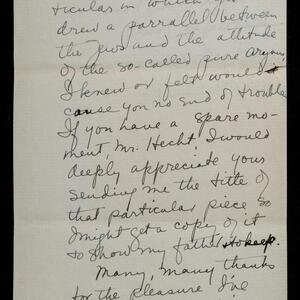 ticulas in which you
drew a parrallel between
the Jews and the attitude
of the so-called pure Aryans,
I knew or felt would
cause you no end of trouble
If you have a spare mo-
ment, Mr. Hecht, I would
deeply appreciate your
sending me the title of
that particular piece so
I might get a copy of it
to show my father to keep.
Many, many thanks
for the pleasure I've